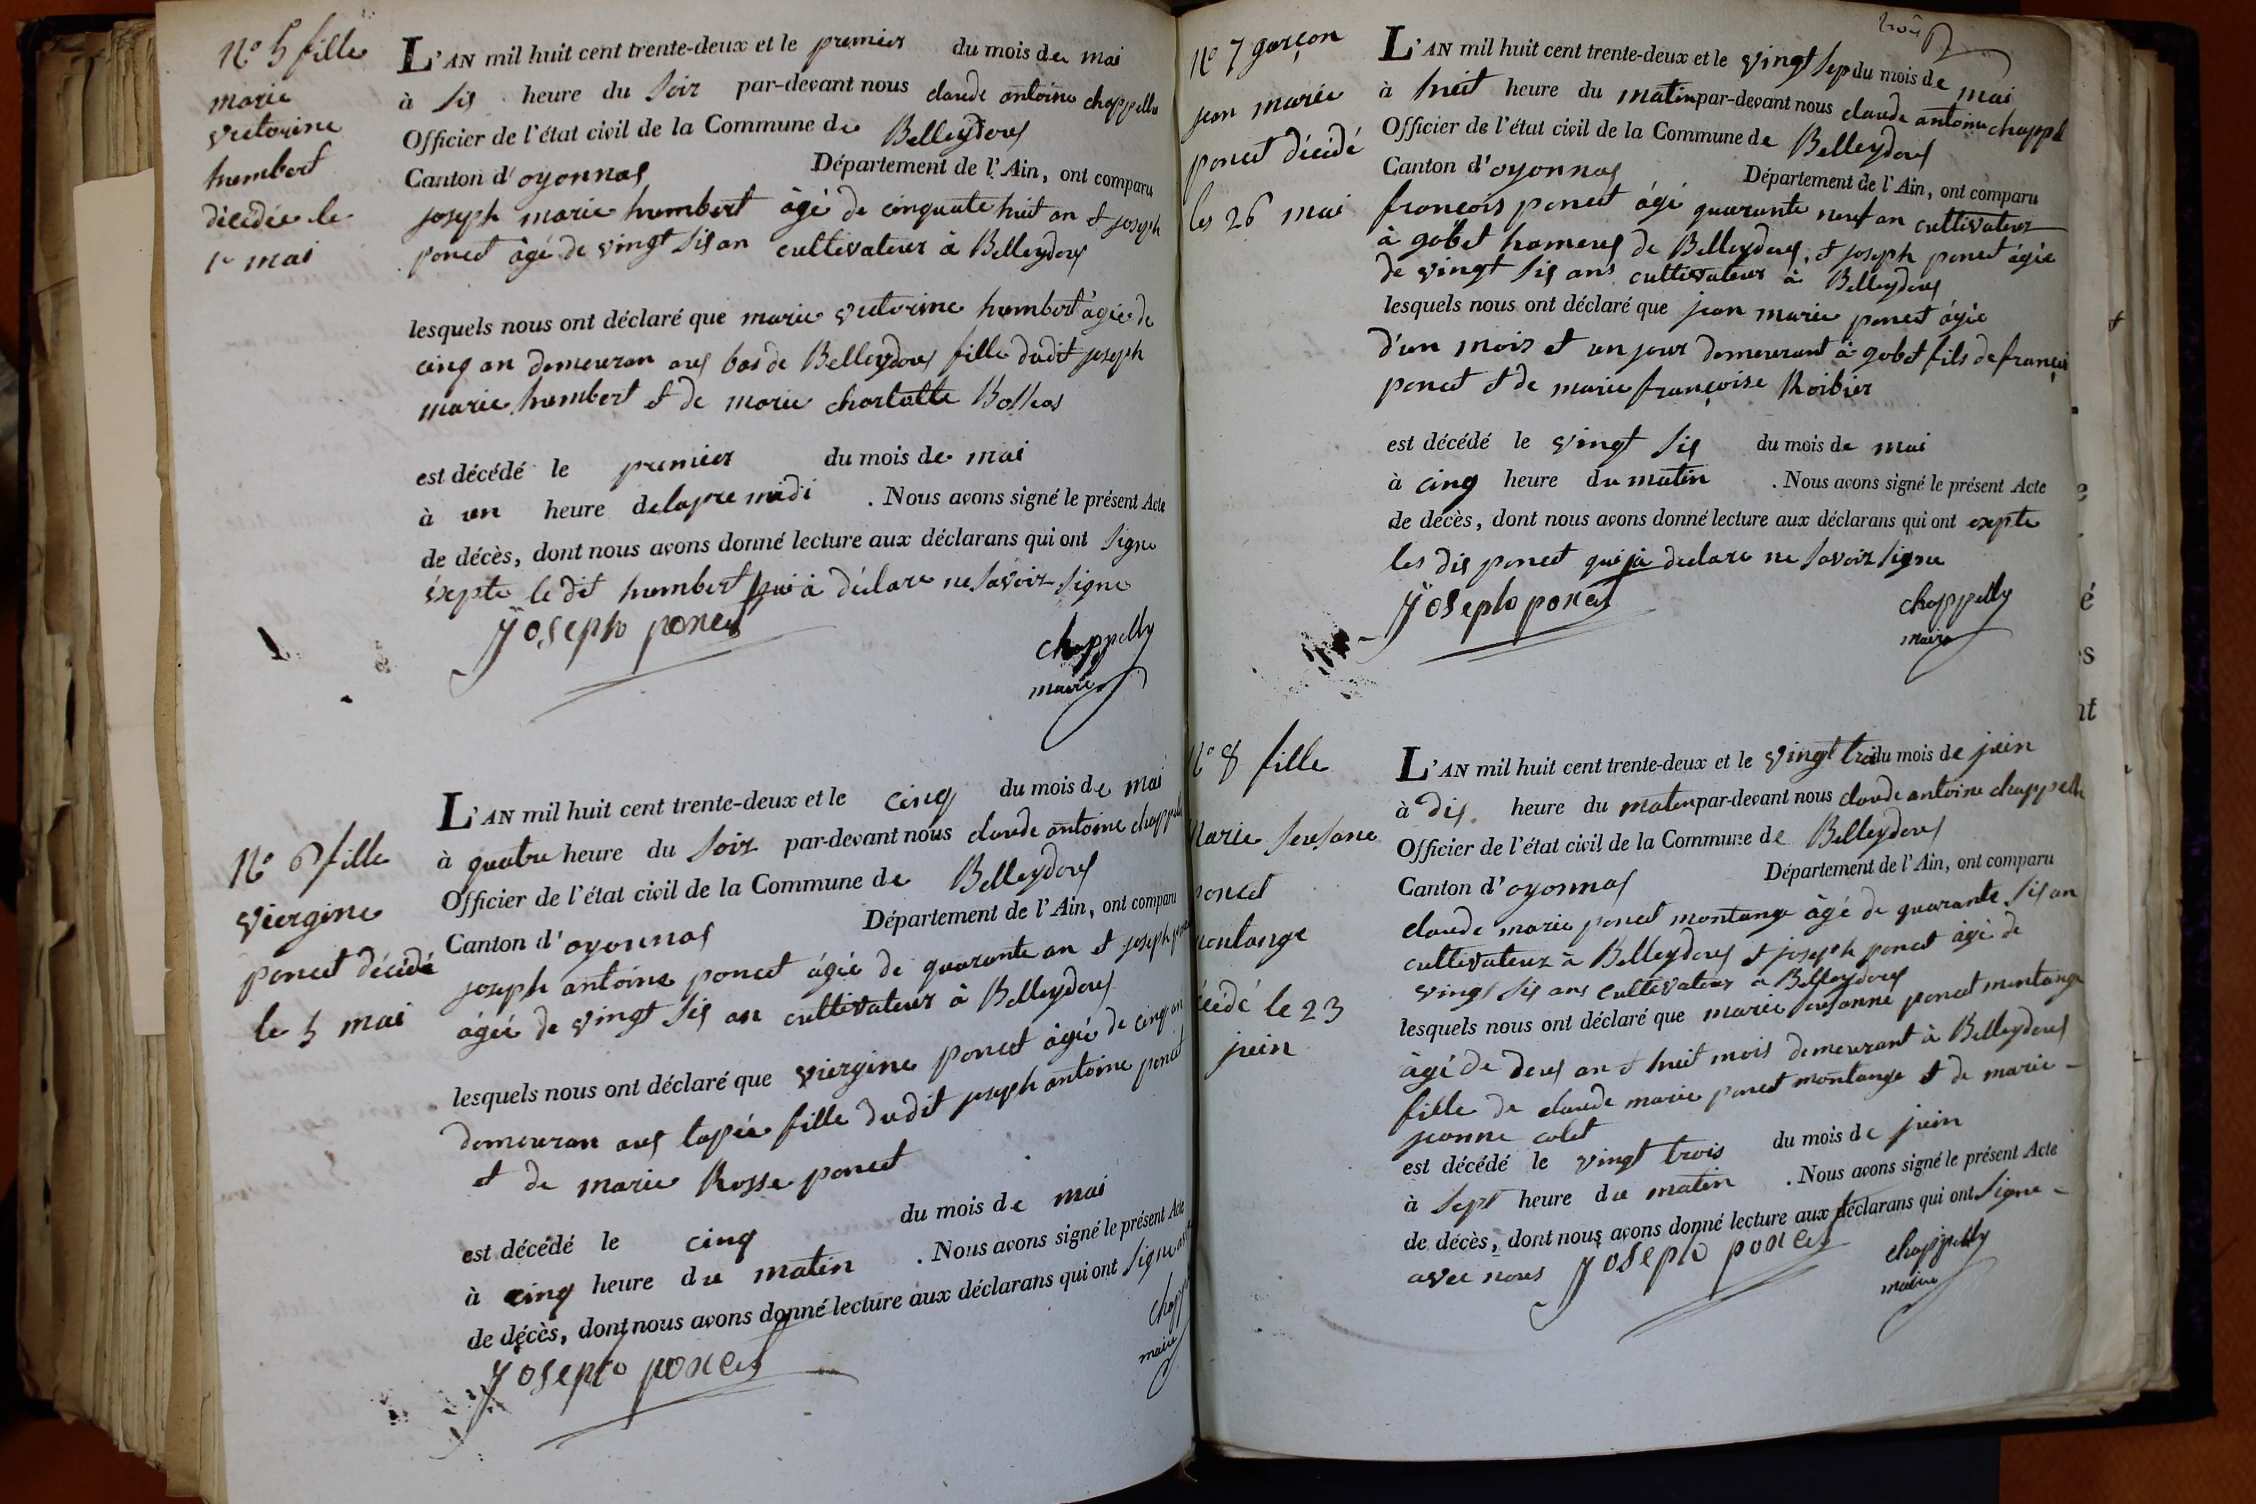 N.o 5 fille
marie
victorine
humbert
décédée le
1er mai
L'AN mil huit cent trente-deux et le premier du mois de mai
à sis heure du soir par-devant nous claude antoine chappelly
Officier de l'état civil de la Commune de Belleydoux
Canton d'oyonnas Département de l'Ain, ont comparu
joseph marie humbert âgé de cinquate huit an et joseph
poncet âgé de vingt sis an cultivateur à Belleydoux
lesquels nous ont déclaré que marie victorine humbert âgée de
cinq an demeuran aux bas de Belleydoux fille dudit joseph
marie humbert et de marie charlotte
est décédé le premier du mois de mai
à un heure delapre midi . Nous avons signé le présent Acte
de décès, dont nous avons donné lecture aux déclarans qui ont signe
éxepte le dit humbert qui à déclare ne savoir signe
joseph poncet
chappelly
maire
N.o 6 fille
viergine
poncet décédé
le 5 mai
L'AN mil huit cent trente-deux et le cinq du mois de mai
à quatre heure du soir par-devant nous claude antoine chappelly
Officier de l'état civil de la Commune de Belleydoux
Canton d'oyonnas Département de l'Ain, ont comparu
joseph antoine poncet âgée de quarante an et joseph poncet
âgée de vingt sis an cultivateur à Belleydoux
lesquels nous ont déclaré que viergine poncet âgée de cinq an
demeuran aux tapie fille dudit joseph antoine poncet
et de marie Rosse poncet
est décédé le cinq du mois de mai
à cinq heure du matin . Nous avons signé le présent Acte
de décès, dont nous avons donné lecture aux déclarans qui ont signe
joseph poncet
maire
N.o 7 garçon
jean marie
poncet décédé
les 26 mai
L'AN mil huit cent trente-deux et le vingt sep du mois de mai
à huit heure du matin par-devant nous claude antoine chappelly
Officier de l'état civil de la Commune de Belleydoux
Canton d'oyonnas Département de l'Ain, ont comparu
francois poncet âgé quarante neuf an cultivateur
à gobet hameux de Belleydoux, et joseph poncet âgée
de vingt sis ans cultivateur à Belleydoux
lesquels nous ont déclaré que jean marie poncet âgée
d'un mois et un jour demeurant à gobet fils de françois
poncet et de marie françoise Roibier
est décédé le vingt sis du mois de mai
à cinq heure du matin . Nous avons signé le présent Acte
de décès, dont nous avons donné lecture aux déclarans qui ont exepte
les dis poncet qui jà declare ne savoir signe
joseph poncet
chappelly
maire
N.o 8 fille
Marie Sensane
poncet
montange
décédé le 23
juin
L'AN mil huit cent trente-deux et le vingt troi du mois de juin
à dis heure du maten par-devant nous claude antoine chappelly
Officier de l'état civil de la Commune de Belleydoux
Canton d'oyonnas Département de l'Ain, ont comparu
claude marie poncet montange âgé de quarante sis an
cultivateur à Belleydoux et joseph poncet âgé de
vingt sis ans cultivateur à Belleydoux
lesquels nous ont déclaré que marie sensanne poncet montange
âgé de deux an et huit mois demeurant à Belleydoux
fille de claude marie poncet montange et de marie -
jeanne colet
est décédé le vingt trois du mois de juin
à sept heure du matin . Nous avons signé le présent Acte
de décès, dont nous avons donné lecture aux déclarans qui ont signe -
avec nous joseph poncet
chappelly
maire